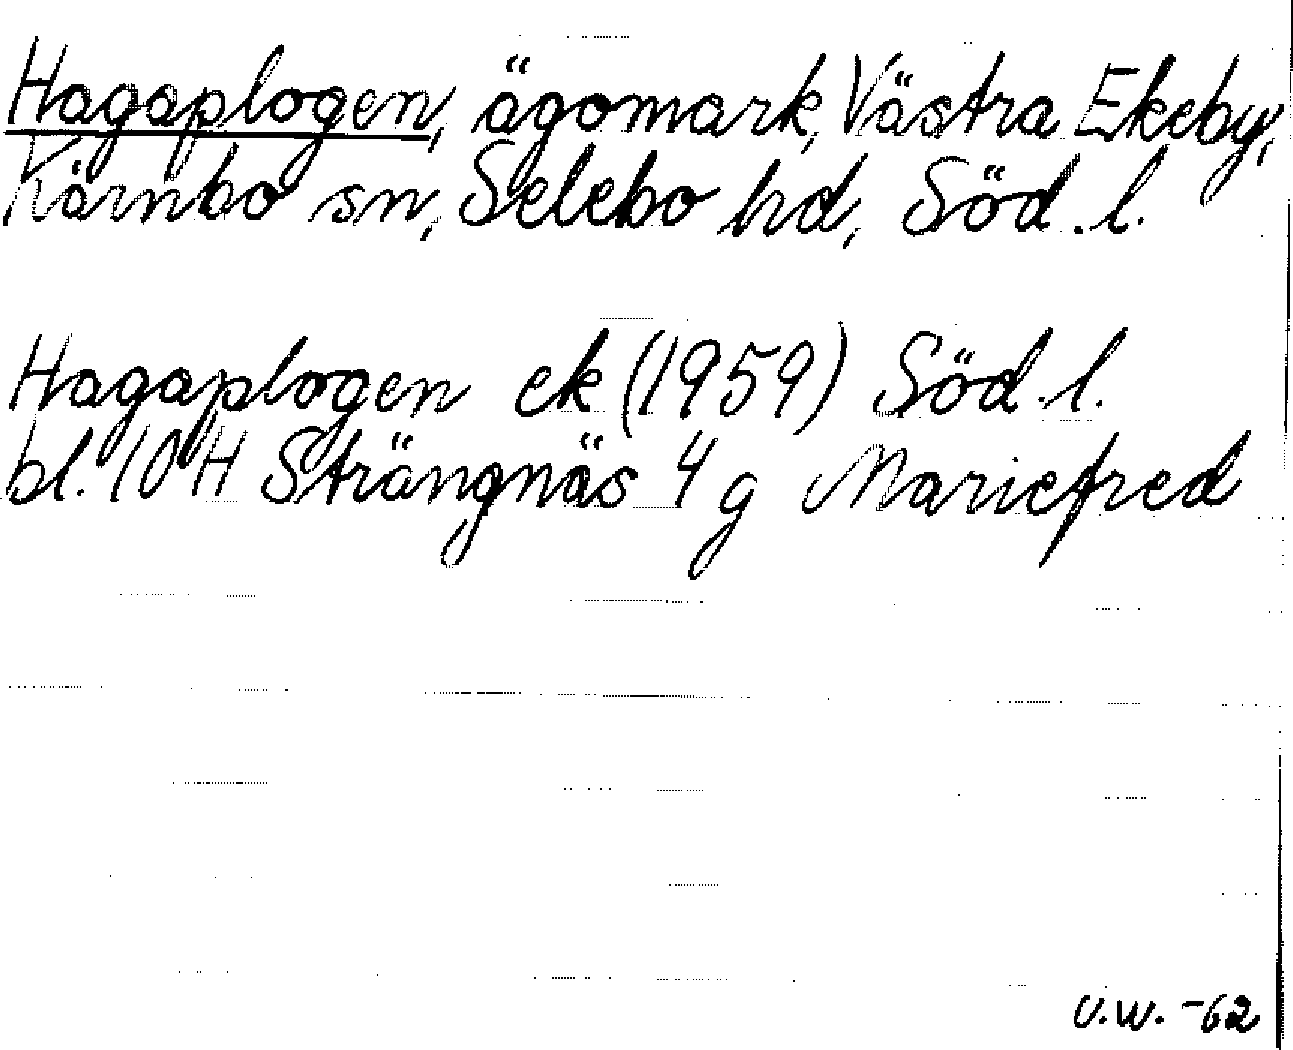 Hagaplogen, ägomark, Västra Ekeby,
Kärnbo sn, Selebo hd, Söd.l.
Hagaplogen ek (1959) Söd.l.
bl. 10 H Strängnäs 4 g Mariefred
U.W. -62